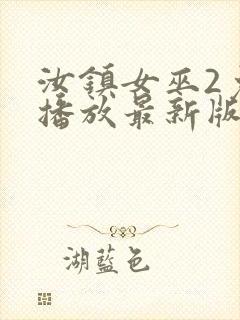 汝鎮女巫2
播放最新版
湖藍色